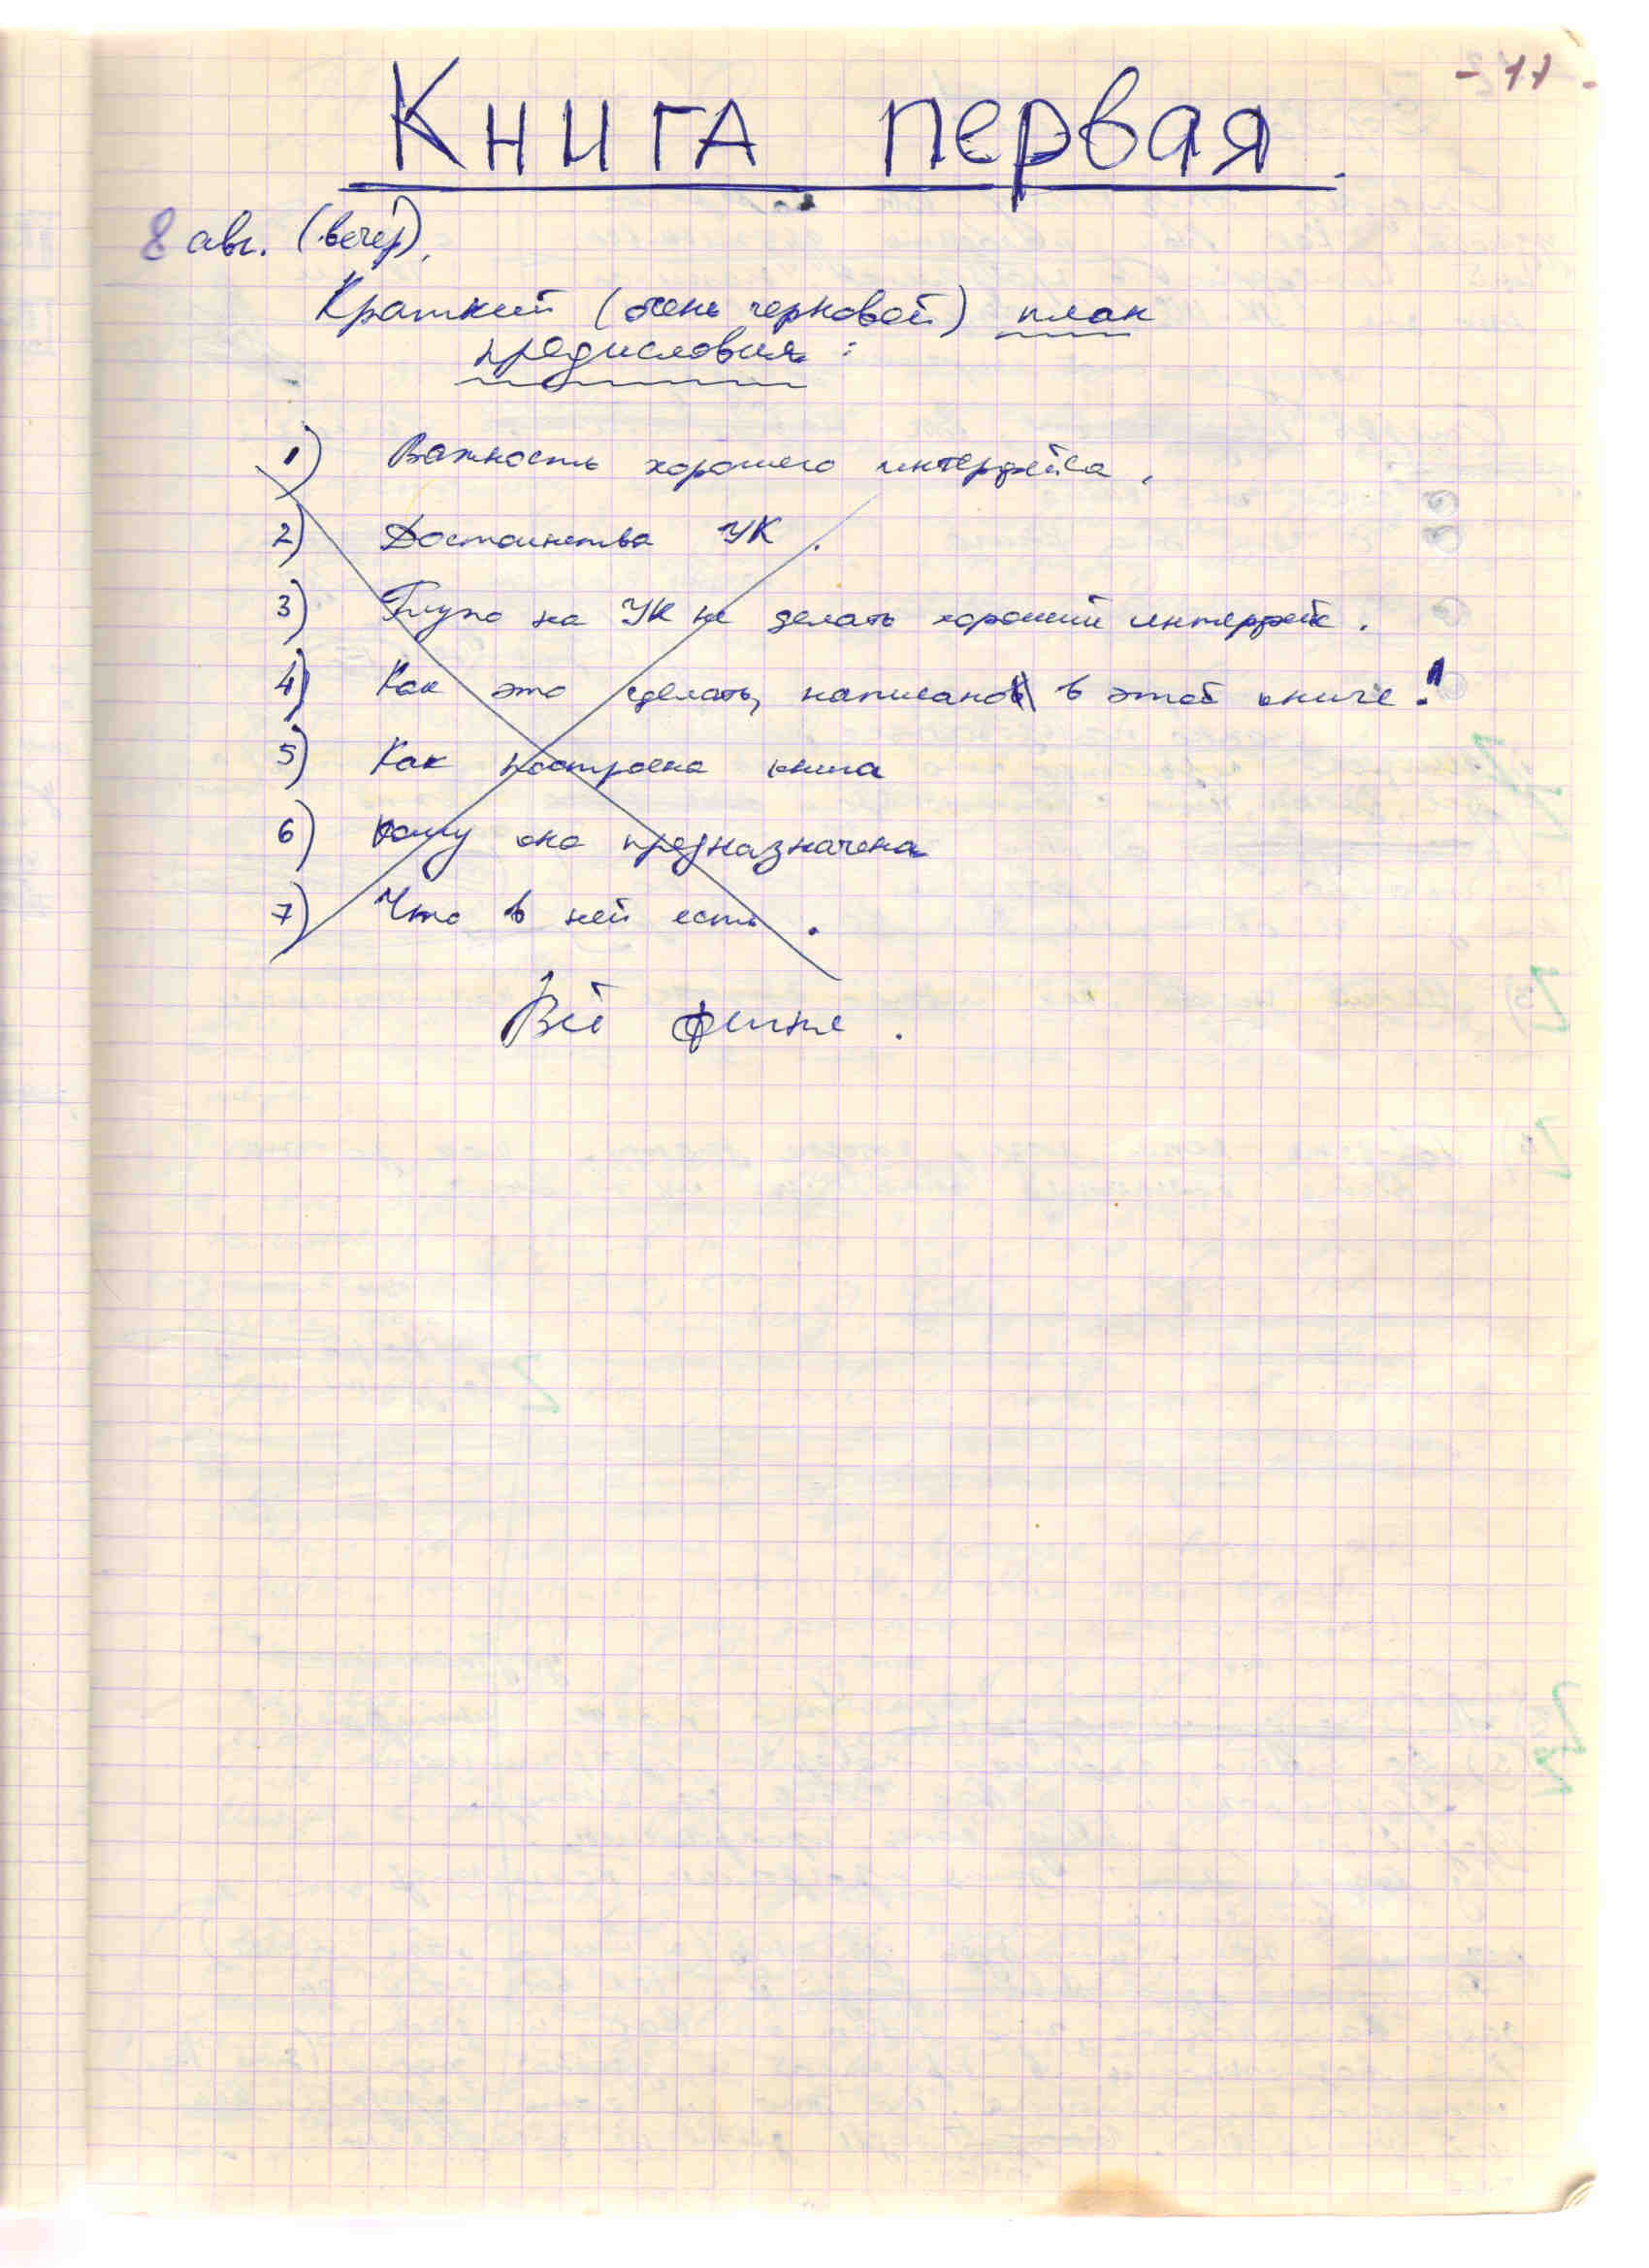 - 17 -
Книга первая.
8 авг. (вечер).
Краткий (очень черновой) план
предисловия:
1) Важность хорошего интерфейса.
2) Достоинства УК.
3) Глупо на УК не делать хороший интерфейс.
4) Как это сделать, написано в этой книге!
5) Как построена книга
6) Кому она предназначена
7) Что в ней есть.
Всё